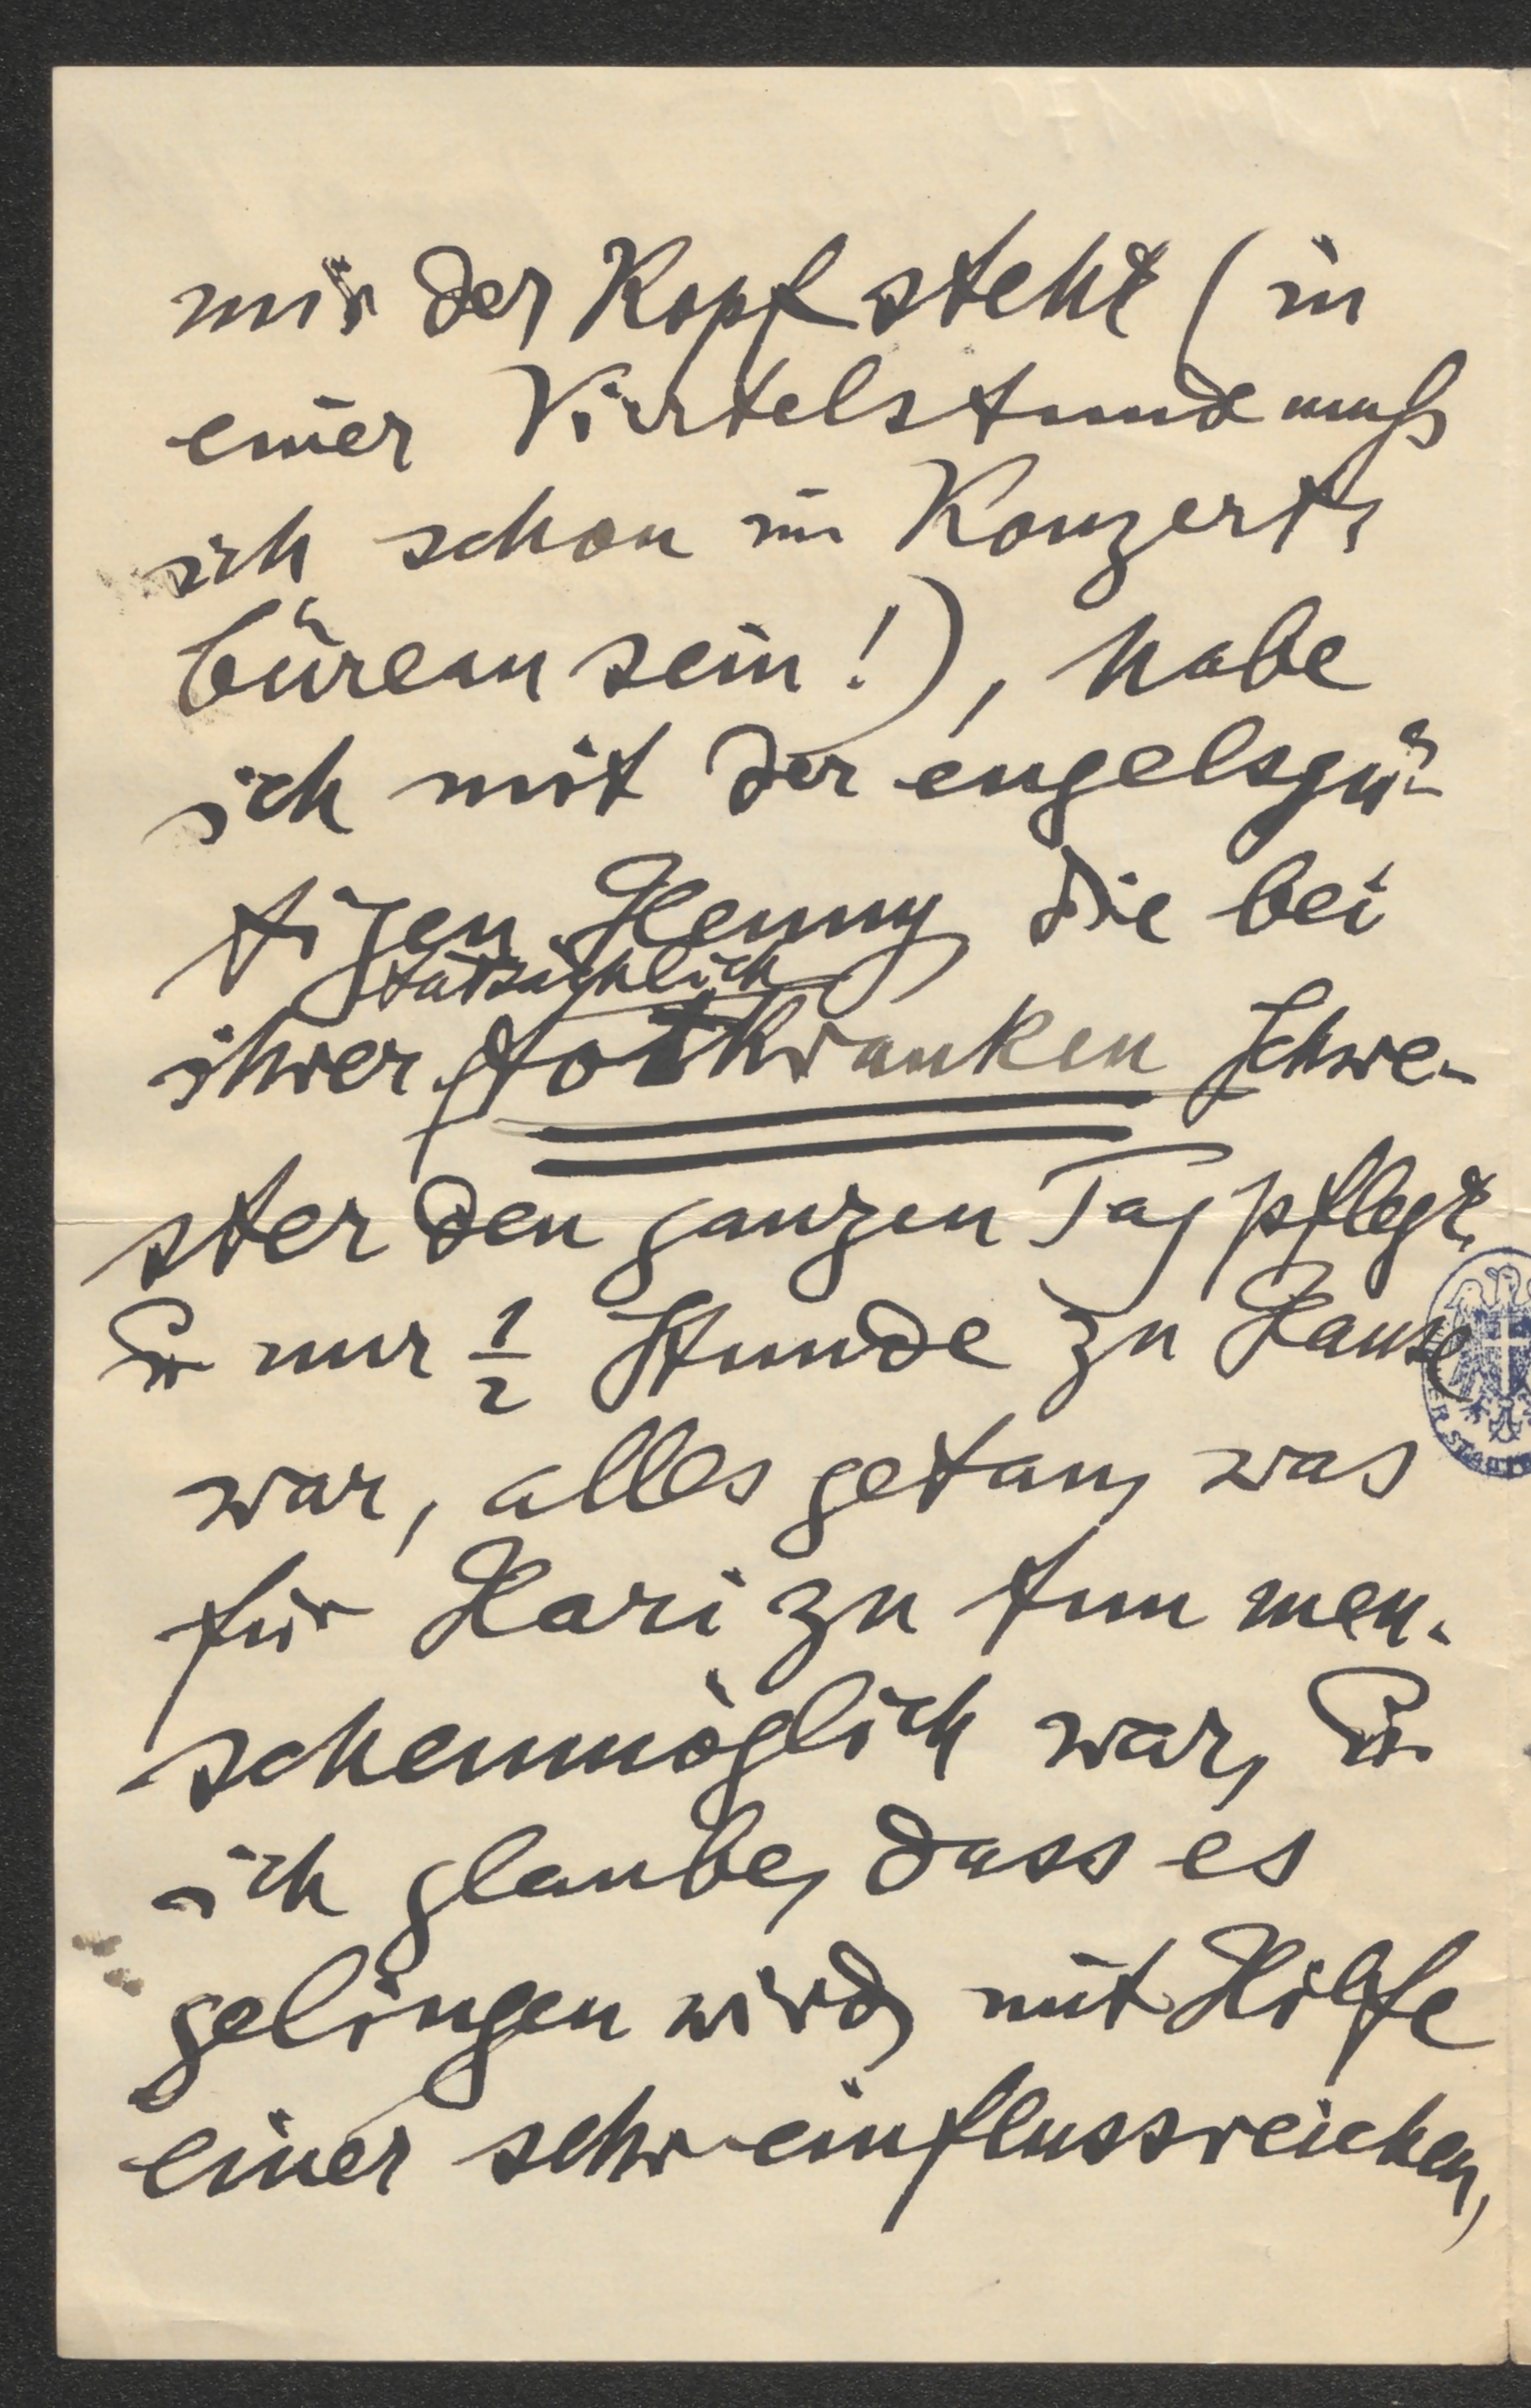 mir der Kopf steht (in
einer Viertelstunde muß
ich schon im Konzert-
büreau sein!), habe
ich mit der engelsgü-
tigen Henny, die bei
tatsächlich
ihrer totkranken Schwe-
ster den ganzen Tag pflegt,
u nur 1/2 Stunde zu Hause
war, alles getan, was
für Hari zu tun men-
schenmöglich war, u
ich glaube, dass es
gelingen wird, mit Hilfe
einer sehr einflussreichen,